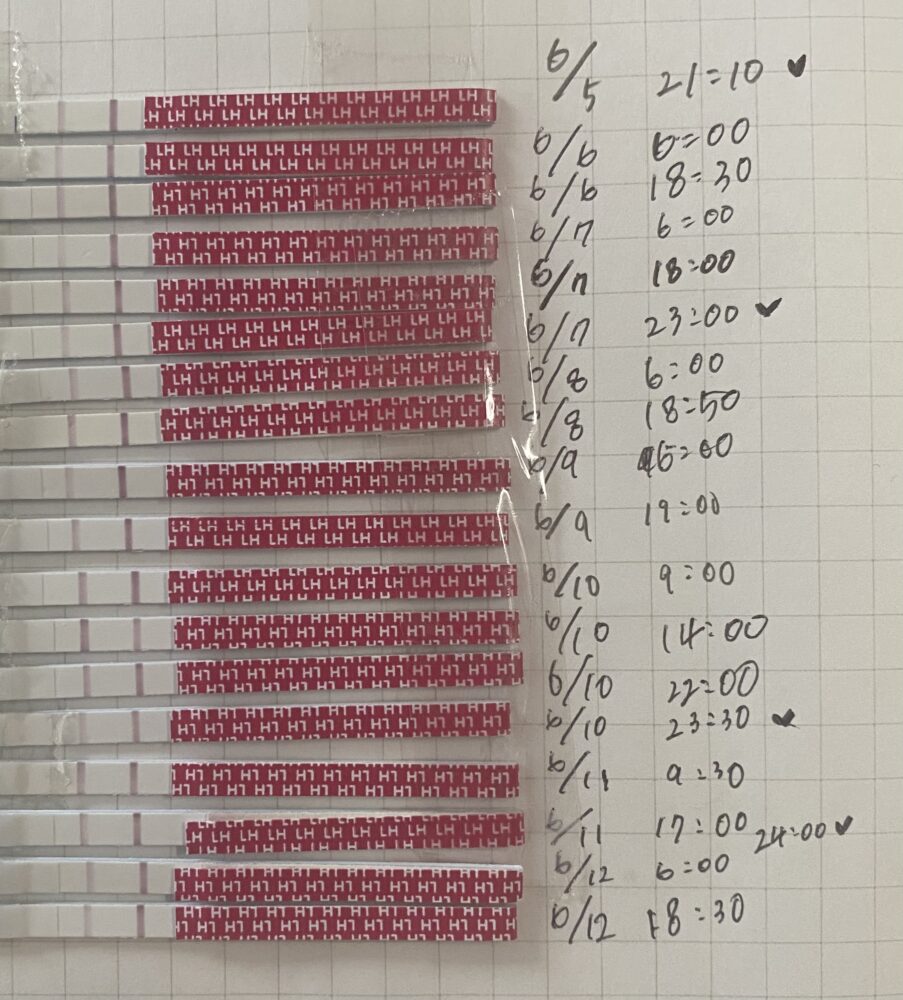 LH LH LH LH LH LH LH LH LH LH LH LH
6/5 21:10 ♥
6/6 6:00
6/6 18:30
6/7 6:00
6/7 18:00
6/7 23:00 ♥
6/8 6:00
6/8 18:50
6/9
6/9 19:00
6/10 9:00
6/10 14:00
6/10 22:00
6/10 23:30 ♥
6/11 9:30
6/11 17:00 24:00 ♥
6/12 6:00
6/12 18:30